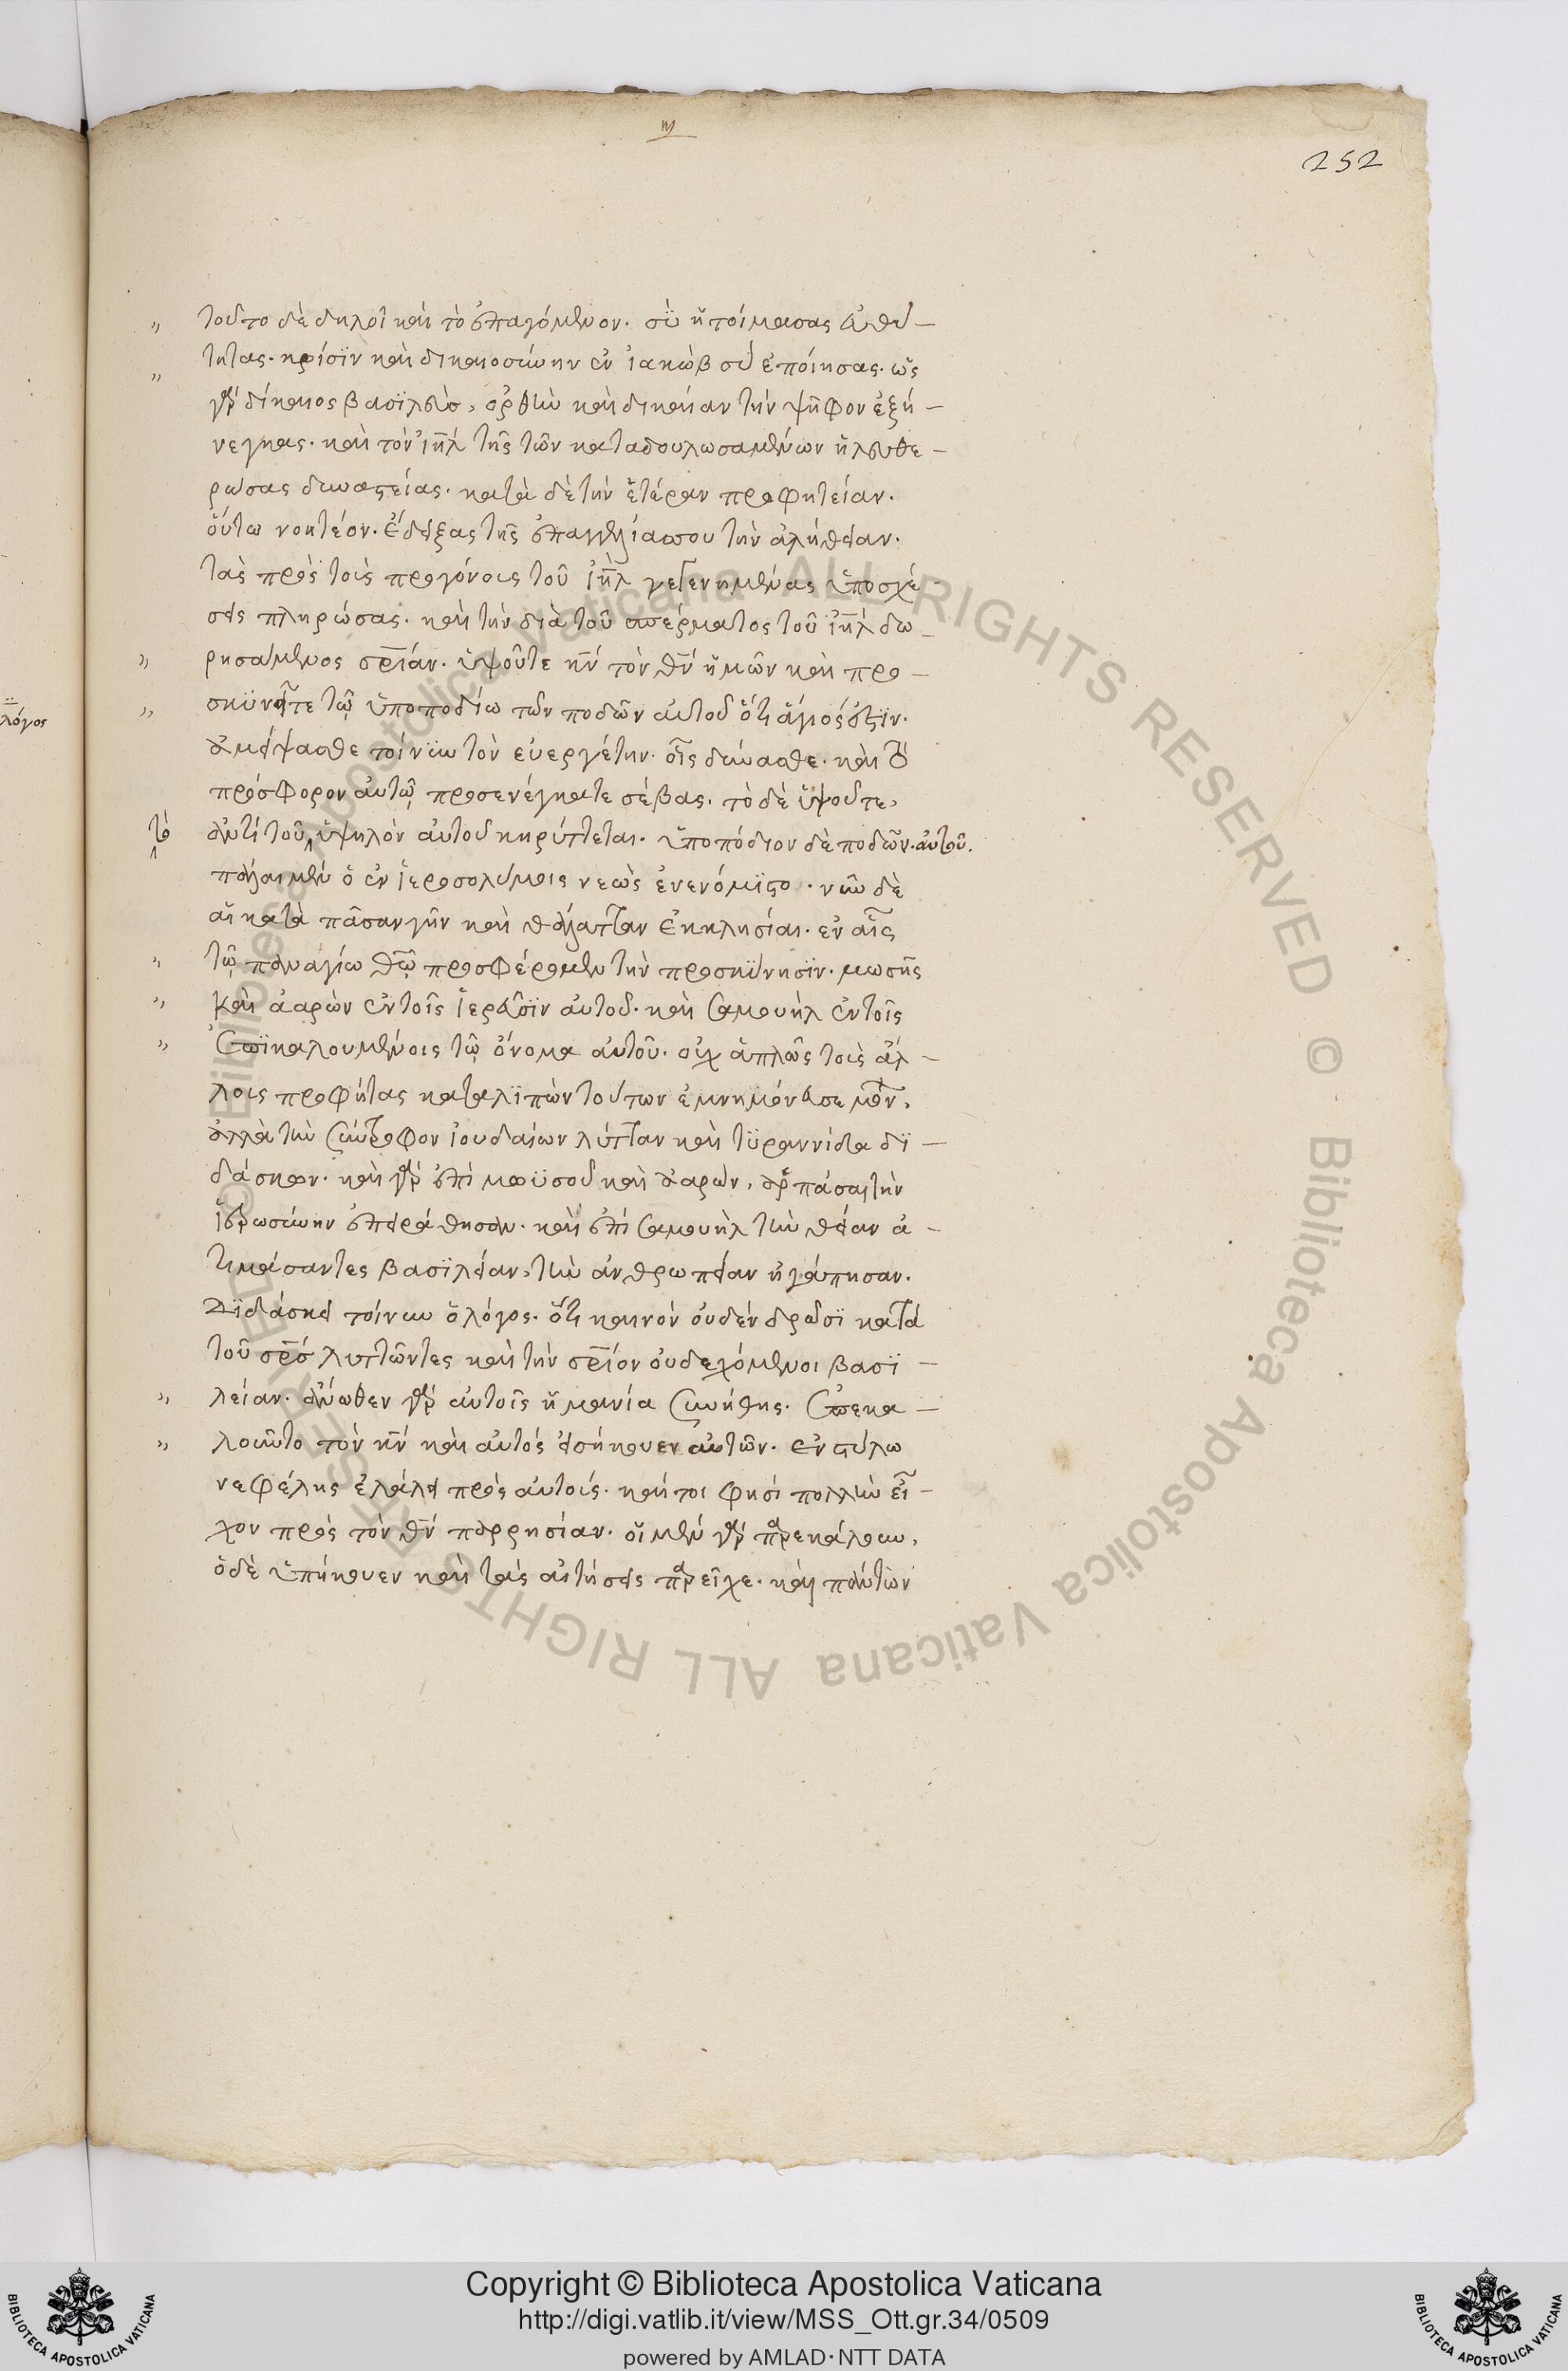 252
τοῦτο δὲ δηλοῖ καὶ τὸ ἐπαγόμενον. σὺ ἡτοίμασας εὐθύ-
τητας. κρίσϊν καὶ δικαιοσύνην ἐν ἰακὼβ σὺ ἐποίησας. ὡς
γὰρ δίκαιος βασϊλεὺς, ὀρθὴν καὶ δικαίαν τὴν ψῆφον ἐξή-
νεγκας. καὶ τὸν ἰη̅λ τῆς τῶν καταδουλωσαμένων ἠλευθέ-
ρωσας δυναστείας. κατὰ δὲ τὴν ἑτέραν προφητείαν.
οὕτω νοητέον. ἔδειξας τῆς ἐπαγγελίας σου τὴν ἀλήθειαν.
τὰς πρὸς τοὺς προγόνους τοῦ ἰη̅λ γεγενημένας ὑποσχέ
σεις πληρώσας. καὶ τὴν διὰ τοῦ σπέρματος τοῦ ἰη̅λ δω-
ρησάμενος σρ̅ίαν. ὑψοῦτε κν̅ τὸν θν̅ ἡμῶν καὶ προ-
σκϋνεῖτε τῷ ὑποποδίω τῶν ποδῶν αὐτοῦ ὅτι ἅγιός ἐστϊν.
ἀμείψασθε τοίνϋν τὸν εὐεργέτην. οἷς δύνασθε. καὶ τὸ
πρόσφορον αὐτῷ προσενέγκατε σέβας. τὸ δὲ ὑψοῦτε,
τὸ
ἀντὶ τοῦ ὑψηλὸν αὐτοῦ κηρύττεται. ὑποπόδιον δὲ ποδῶν. αὐτοῦ.
πάλαι μὲν ὁ ἐν ἱεροσολύμοις νεὼς ἐνενόμϊστο. νῦν δὲ
αἱ κατὰ πᾶσαν γῆν καὶ θάλατταν ἐκκλησίαι. ἐν αἷς
τῷ παναγίω θῶ̅ προσφέρομεν τὴν προσκΰνησϊν. μωσῆς
καὶ ἀαρὼν ἐν τοῖς ἱερεῦσϊν αὐτοῦ. καὶ σαμουὴλ ἐν τοῖς
ἐπϊκαλουμένοις τῷ ὄνομα αὐτοῦ. οὐχ ἁπλῶς τοὺς ἄλ-
λους προφήτας καταλϊπὼν τούτων ἐμνημόνευσε μόν,
ἀλλὰ τὴν σύντροφον ἰουδαίων λύτταν καὶ τϋραννίδα δϊ-
δάσκων. καὶ γὰρ ἐπὶ μωϋσοῦ καὶ ἀαρὼν, ἁρπάσαι τὴν
ἱερωσύνην ἐπειράθησαν. καὶ ἐπὶ σαμουὴλ τὴν θείαν ἀ-
τιμάσαντες βασϊλείαν, τὴν ἀνθρωπείαν ἠγάπησαν.
Δϊδάσκει τοίνυν ὁ λόγος. ὅτι καινὸν οὐδὲν δρῶσϊ κατὰ
τοῦ σρ̅ο λυττῶντες καὶ τὴν σρ̅ίον οὐ δεχόμενοι βασϊ-
λείαν. ἄνωθεν γὰρ αὐτοῖς ἡ μανία συνήθης. ἐπεκα-
λοῦντο τὸν κν̅ καὶ αὐτὸς εἰσήκουεν αὐτῶν. ἐν στύλω
νεφέλης ἐλάλει πρὸς αὐτούς. καί τοι φησὶ πολλὴν εἶ-
χον πρὸς τὸν θν̅ παρρησίαν. οἱ μὲν γὰρ παρεκάλουν,
ὁ δὲ ὑπήκουεν καὶ τὰς αἰτήσεις παρεῖχε. καὶ πάντων
λόγος
Copyright © Biblioteca Apostolica Vaticana
http://digi.vatlib.it/view/MSS_Ott.gr.34/0509
powered by AMLAD·NTT DATA
© Biblioteca Apostolica Vaticana ALL RIGHTS RESERVED © Biblioteca Apostolica Vaticana ALL RIGHTS RESERVED
BIBLIOTECA APOSTOLICA VATICANA
BIBLIOTECA APOSTOLICA VATICANA